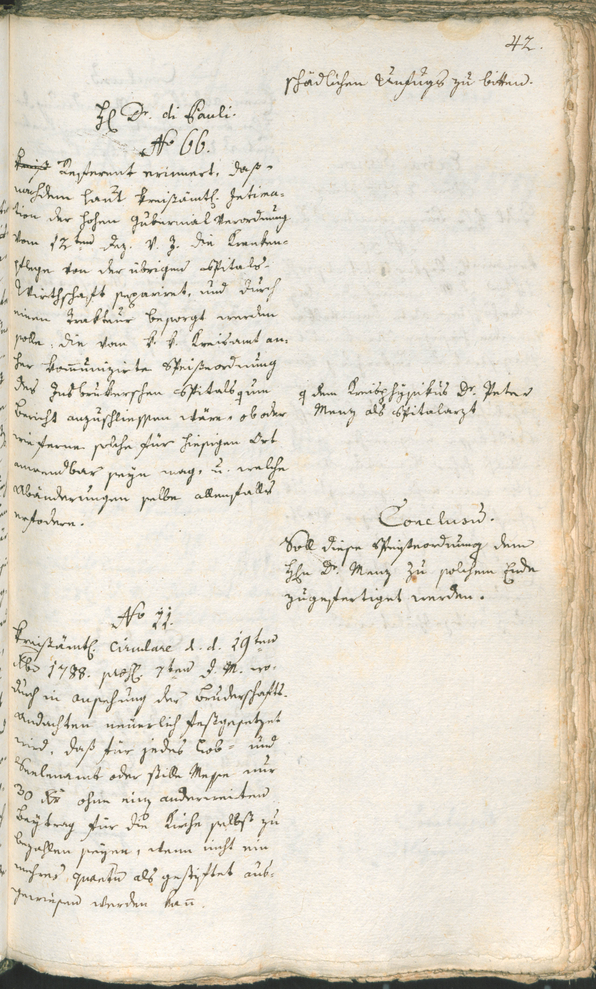 42.
schädlichen Unfugs zu bitten.
H Dr. di Pauli.
No 66.
Referent erinnert, daß
nachdem laut kreisämtl. Intima-
tion der hohen Gubernial Verordnung
vom 12ten Dez. v. J. die Kranken-
pflege von der übrigen Spitals-
Wirthschaft separiret, und durch
einen Trakteur besorgt werden
solle, die vom k. k. Kreisamt an-
her kommunizirte Speiseordnung
des Insbrukerschen Spitals zum
Bericht anzuschliessen wäre, ob oder
wieferne solche für hiesigen Ort
anwendbar seyn mag, u. welche
Abänderungen selbe allenfalls
erfodere.
dem Kreisphysikus Dr. Peter
Menz als Spitalarzt
Conclusum.
Soll diese Speiseordnung dem
Hn Dr. Menz zu solchem Ende
zugefertiget werden.
No 11.
Kreisämtl. Circulare d. d. 19ten
Xbr 1788. praes. 7ten d. M. wo-
durch in ansehung der Bruderschafts-
Andachten neuerlich festgesetzet
wird, daß für jedes Lob- und
Seelenamt oder stille Messe nur
30 Kr ohne einz anderweiten
Beytrag für die Kirche selbst zu
bezahlen seyen, wenn nicht ein
mehres quantum als gestiftet aus-
gewiesen werden kann.